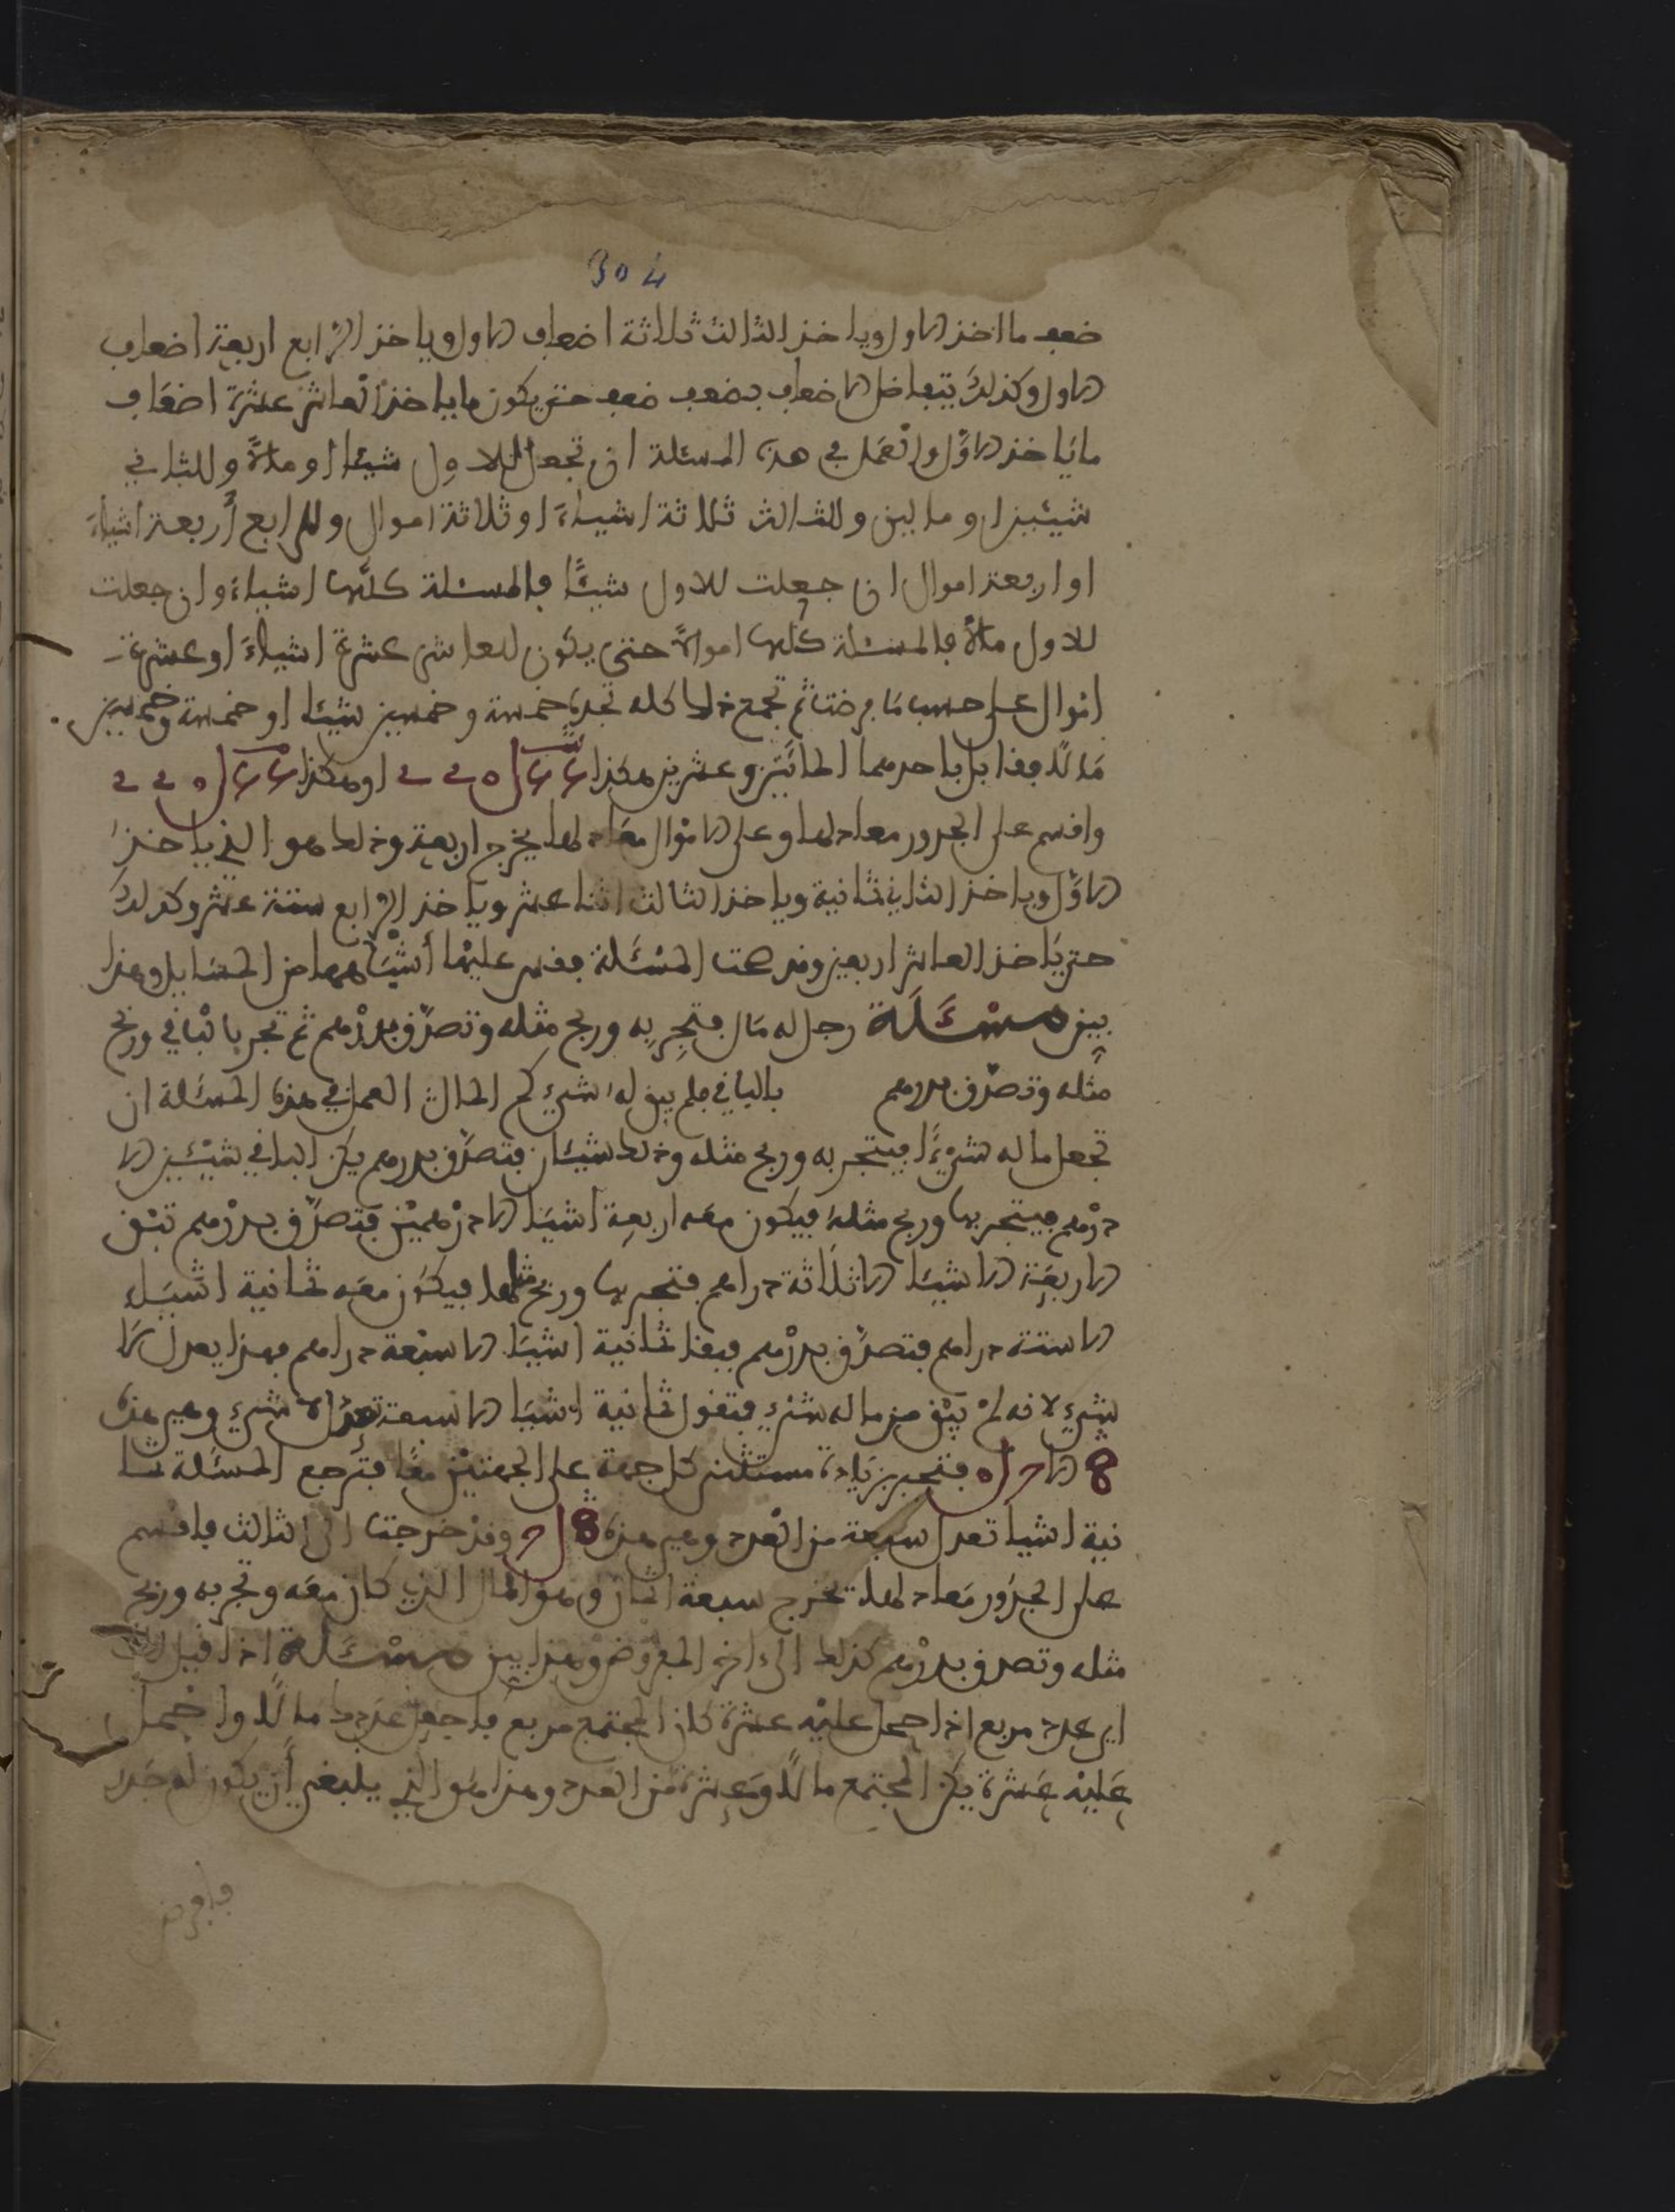 304
ضعف ما اخذ الاول وياخذ الثالث ثلاثة اضعاف الاول وياخذ الرابع اربعة اضعاف
الاول وكذلك يتفاضل الاضعاف بضعف ضعف حتى يكون ما ياخذ العاشر عشرة اضعاف
ما ياخذ الاول والعمل في هذه المسئلة ان تجعل للاول شيئا او مالا وللثاني
شيئين او مالين وللثالث ثلاثة اشياء او ثلاثة اموال وللرابع أربعة اشياء
او اربعة اموال ان جعلت للاول شيئًا فالمسئلة كلّها اشياء وان جعلت
للاول مالاً فالمسئلة كلها اموالاً حتى يكون للعاشر عشرة اشياء او عشرة
اموال على حسب ما فرضت ثم تجمع ذلك كله تجده خمسة وخمسين شيئا او خمسة وخمسين
مالا فقابل باحدهما المائتين وعشرين هكذا او هكذا
واقسم على الجذور معادلها وعلى الاموال معادلها يخرج اربعة وذلك هو الذي ياخذ
الاول وياخذ الثاني ثمانية وياخذ الثالث اثنا عشر وياخذ الرابع ستة عشر وكذلك
حتى ياخذ العاشر اربعين وقد صحت المسئلة فقس عليها أشباهها من المسايل وهذا
بين مسئلة رجل له مال فتجر به وربح مثله وتصدّق بدرهم ثم تجر بالباقي وربح
مثله وتصدّق بدرهم بالباقي فلم يبق له شيء كم المال العمل في هذه المسئلة ان
تجعل ماله شيئا فيتجر به وربح مثله وذلك شيئان فتصدّق بدرهم يكن الباقي شيئين الا
درهم فيتجر بها وربح مثله فيكون معه اربعة اشيا الا درهمين فتصدّق بدرهم تبقى
الاربعة الاشيا الا ثلاثة دراهم فتجر بها وربح مثلها فيكون معه ثمانية اشياء
الا ستة دراهم فتصدّق بدرهم فبقا ثمانية اشيا الا سبعة دراهم فهذا يعدل لا
شيء لانه لم يبق من ماله شيء فتقول ثمانية اشيا الا سبعة تعدل لا شيء وهي هذه
8 الا فتجبر بزيادة مستثنى كل جهة على الجهتين معًا فترجع المسئلة ثما
نية اشيا تعدل سبعة من العدد وهي هذه 8 وقد خرجت الى الثالث فاقسم
على الجذور معادلها تخرج سبعة اثمان وهو المال الذي كان معه وتجر به وربح
مثله وتصدق بدرهم كذلك الى اخر المفروض وهذا بين مسئلة اذا قيل لك
اي عدد مربع اذا حمل عليه عشرة كان المجتمع مربع فاجعل عددك مالا واحمل
عليه عشرة يكن المجتمع مالا وعشرة من العدد وهذا هو الذي ينبغي أن يكون له جذر
فافرض